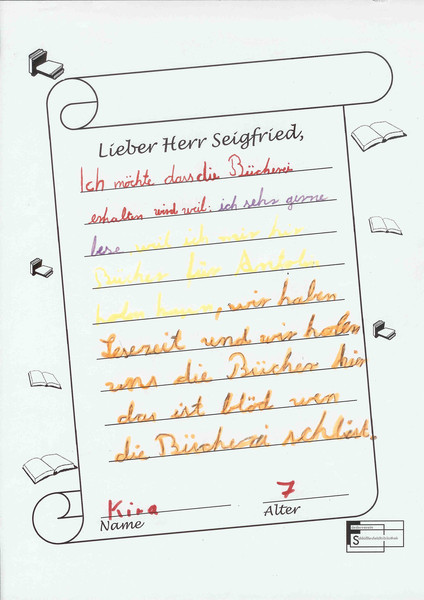 Lieber Herr Seigfried,
Ich möchte dass die Bücherei
erhalten wird weil: ich sehr gerne
lese weil ich mir hir
Bücher für Antolin
holen kann, wir haben
Lesezeit und wir holen
uns die Bücher hir
das ist blöd wen
die Bücherei schliest.
Kira 7
Name Alter